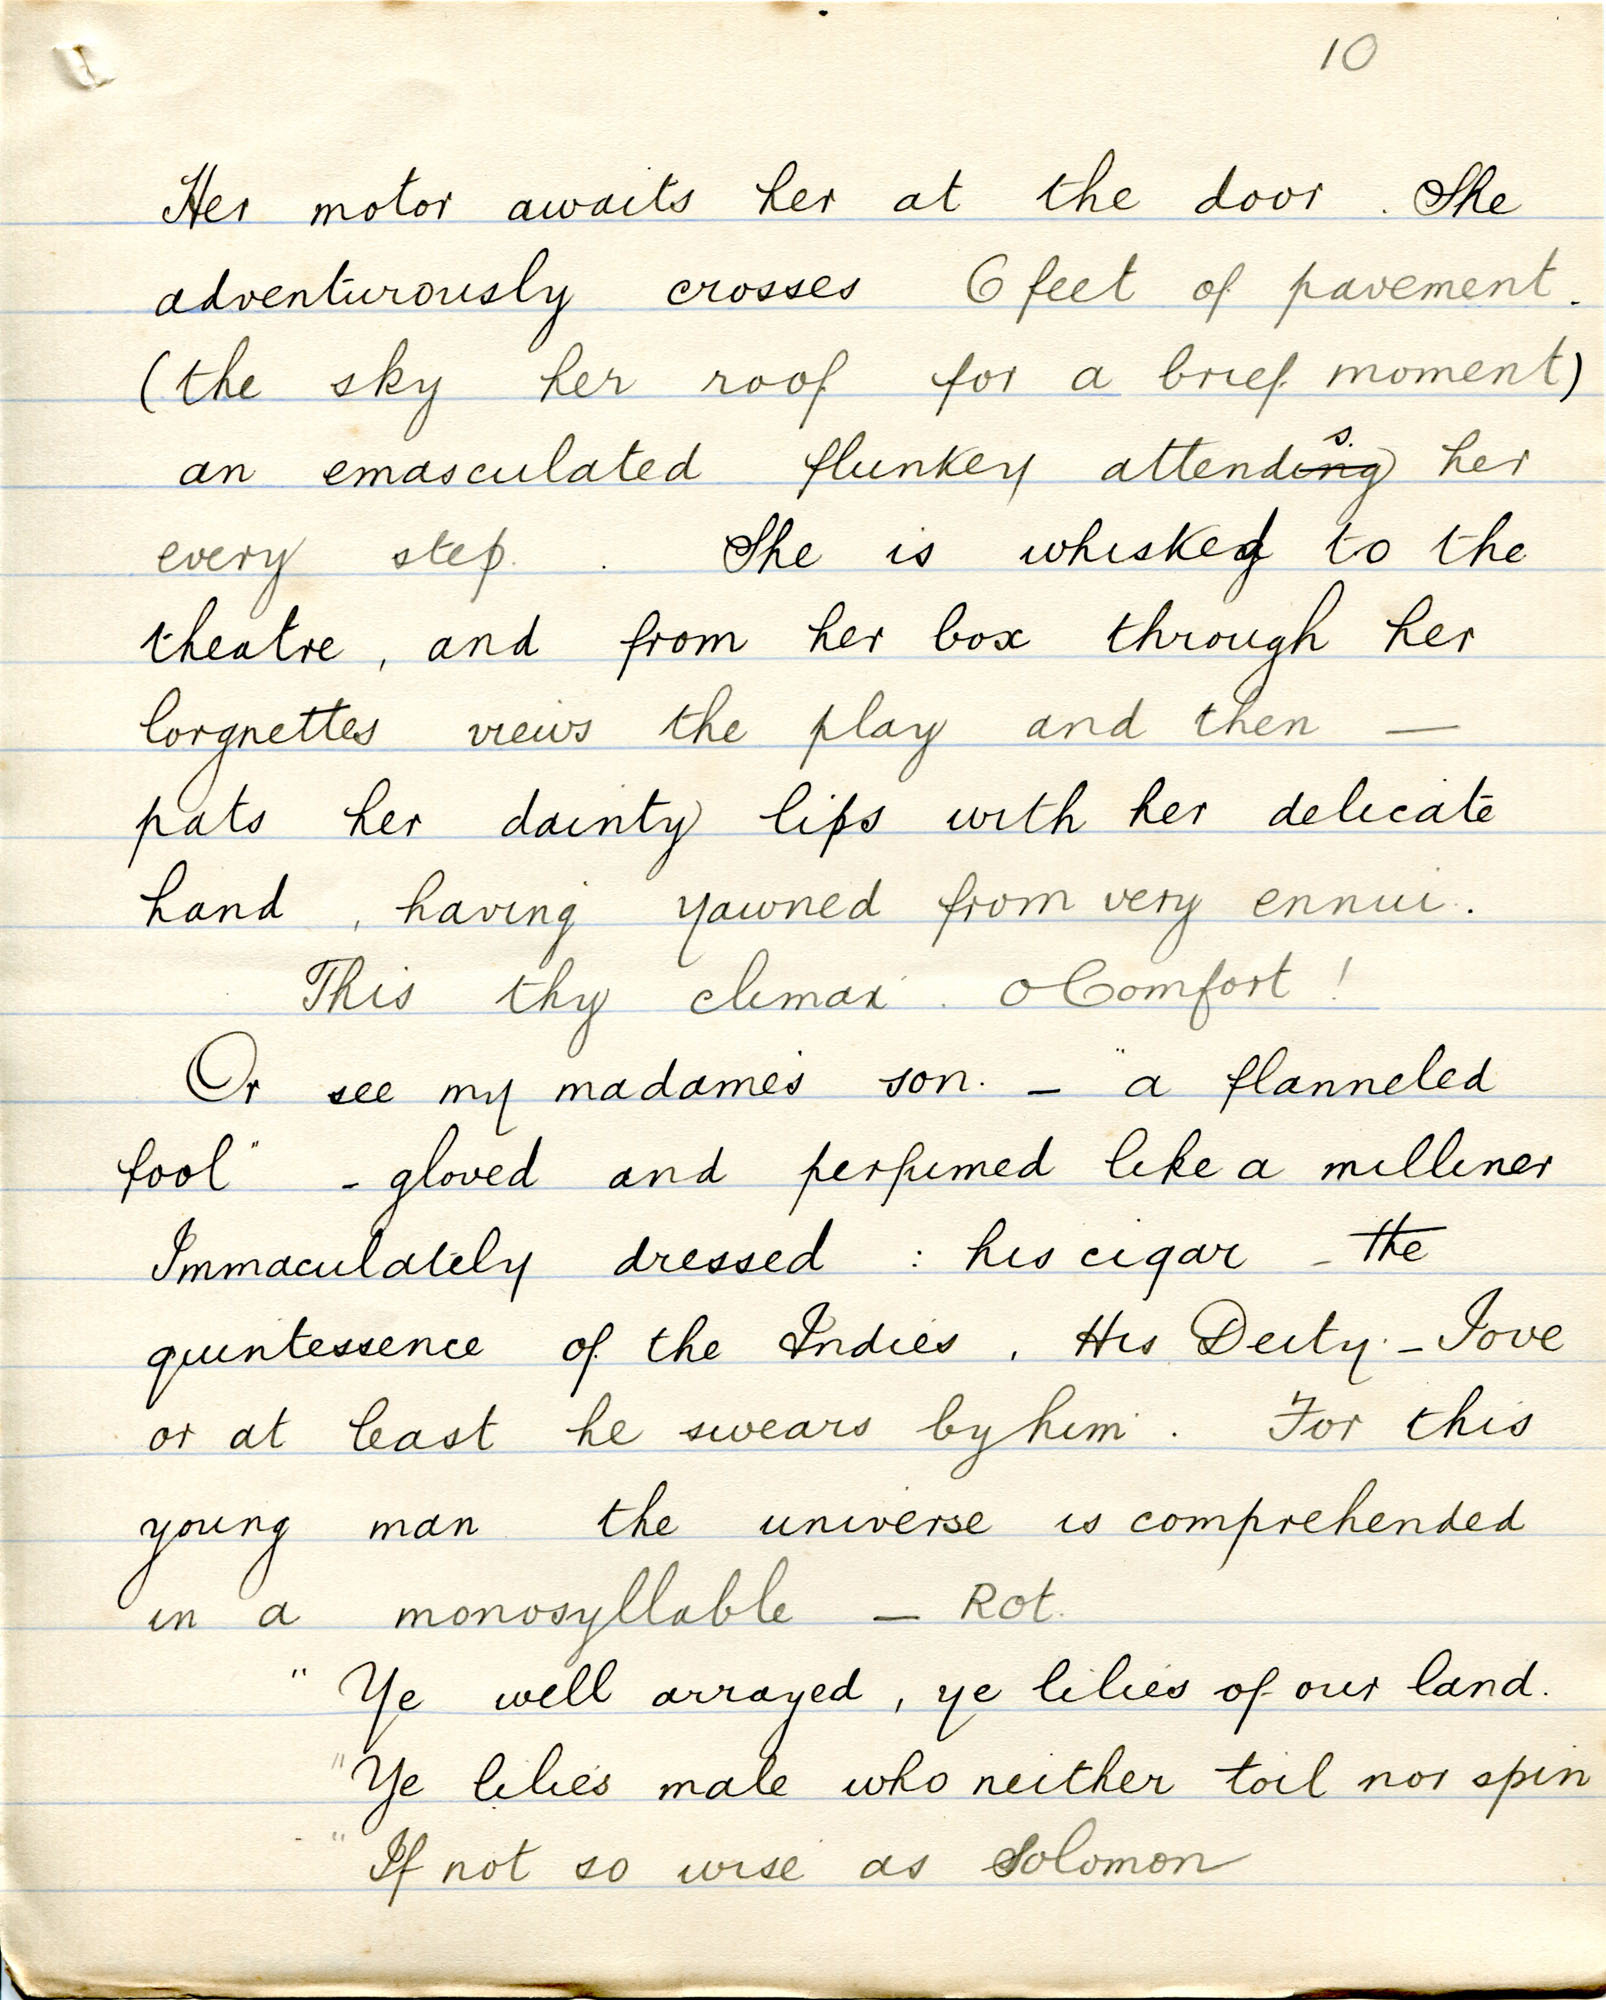 10
Her motor awaits her at the door. She
adventurously crosses 6 feet of pavement.
(the sky her roof for a brief moment)
an emasculated flunkey attendings. her
every step. She is whisked to the
theatre, and from her box through her
lorgnettes views the play and then —
pats her dainty lips with her delicate
hand, having yawned from very ennui.
This thy climax. O Comfort!
Or see my madame's son. — "a flanneled
fool" - gloved and perfumed like a milliner
Immaculately dressed : his cigar - the
quintessence of the Indies. His Deity. - Jove
or at least he swears by him. For this
young man the universe is comprehended
in a monosyllable — Rot.
"Ye well arrayed, ye lilies of our land.
"Ye lilies male who neither toil nor spin
"If not so wise as Solomon